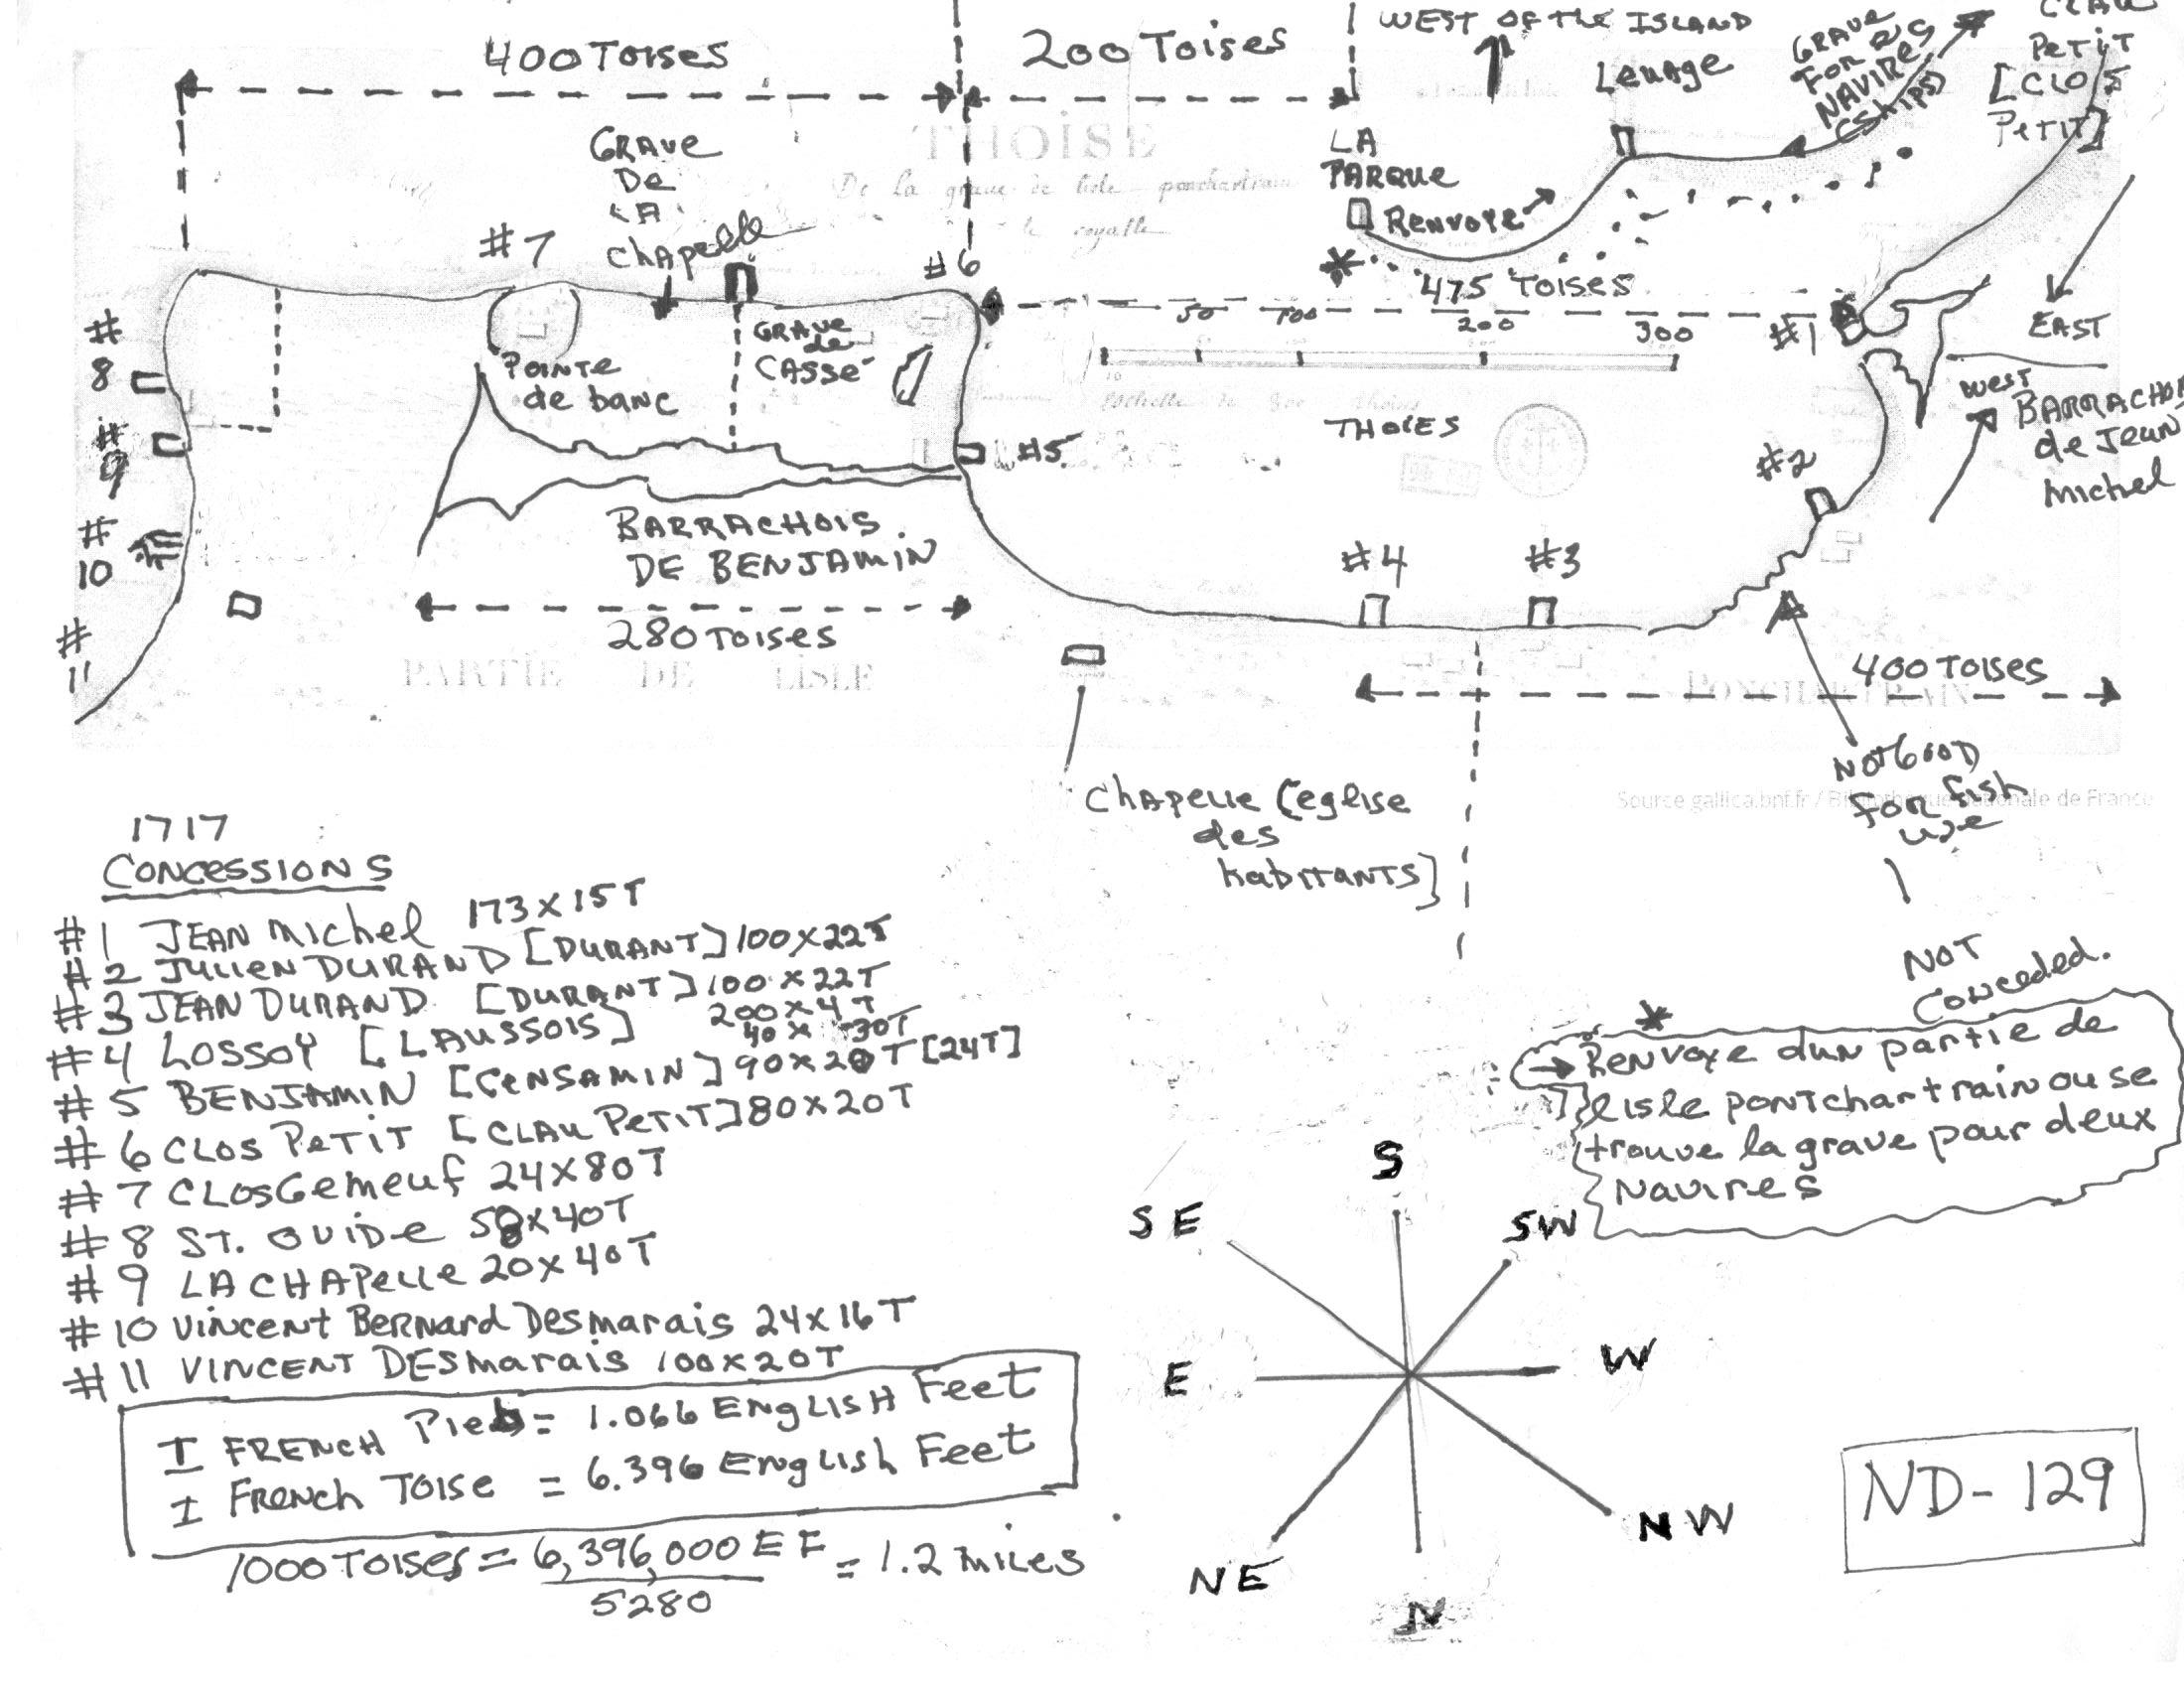 400 Toises
200 Toises
WEST OF THE ISLAND
Leuage
GRAVE
FOR 2
NAVIRES
(Ships)
PETIT
[CLOS
PETIT]
GRAVE
De
LA
Chapelle
THOISE
De la grave de lisle pontchartrain
royalle
LA
PARQUE
Renvoye
#7
#6
475 Toises
50 100 200 300
#1
EAST
#
8
#
9
#
10
#
11
Pointe
de banc
GRAVE
de
CASSE
THOIES
#5
#2
West
BARRACHOIS
de Jean
Michel
BARRACHOIS
DE BENJAMIN
280 Toises
#4
#3
400 TOISES
PARTIE DE LISLE
PONCHARTRAIN
NOT GOOD
FOR fish
use
Source gallica.bnf.fr / Bibliothèque nationale de France
Chapelle [eglise
des
habitants]
1717
CONCESSIONS
#1 JEAN Michel 173 x 15T
#2 JULIEN DURAND [DURANT] 100 x 22T
#3 JEAN DURAND [DURANT] 100 x 22T
200 x 4T
#4 LOSSOY [LAUSSOIS] 40 x 30T
#5 BENJAMIN [CENSAMIN] 90 x 20T [24T]
#6 CLOS PETIT [CLAU PETIT] 80 x 20T
#7 CLOSGemeuf 24 x 80T
#8 ST. OVIDE 50 x 40T
#9 LA CHAPelle 20 x 40T
#10 Vincent Bernard Desmarais 24 x 16T
#11 VINCENT DESmarais 100 x 20T
I FRENCH Pied = 1.066 ENGLISH Feet
I French TOISE = 6.396 English Feet
1000 TOISES = 6,396,000 EF = 1.2 MILES
5280
NOT
Conceded.
*
Renvoye dun partie de
lisle pontchartrain ou se
trouve la grave pour deux
Navires
S
SE
SW
E
W
NE
NW
N
ND-129